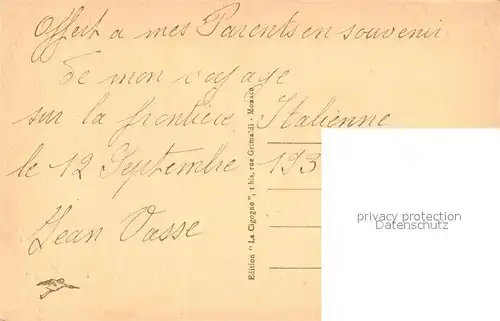 Offert a mes Parents en souvenir
de mon voyage
sur la frontière Italienne
le 12 Septembre 193
Jean Vasse
Edition "La Cigogne", 1 bis, rue Grimaldi - Monaco
privacy protection
AnsichtskartenVersand.com